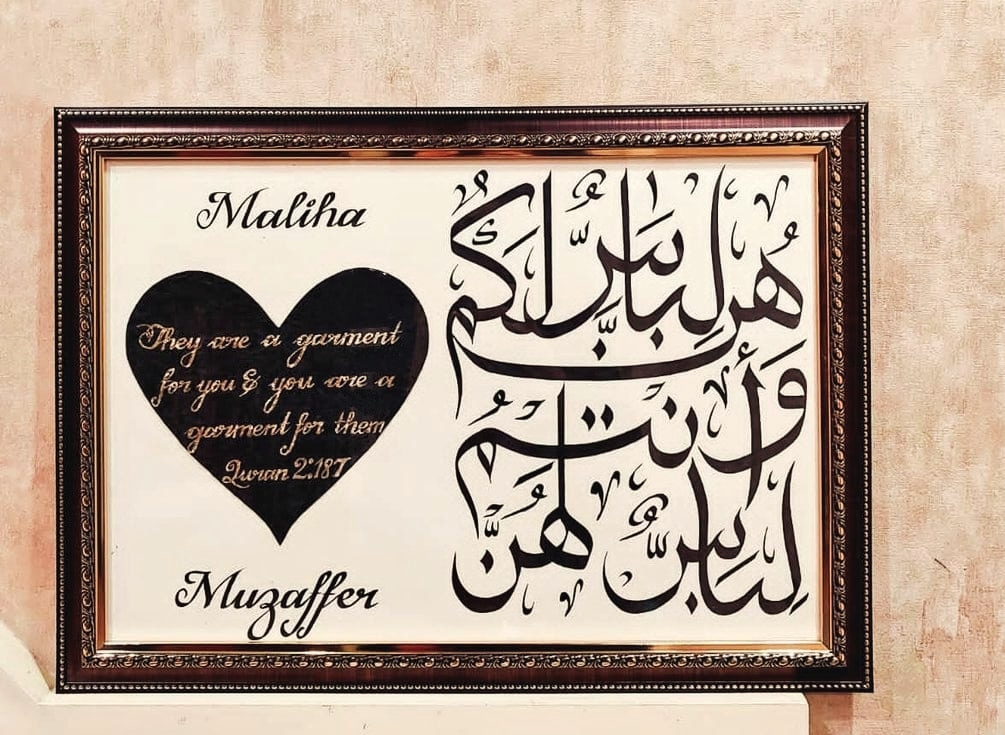 Maliha
They are a garment
for you & you are a
garment for them
Quran 2:187
Muzaffer
هُنَّ لِبَاسٌ لَّكُمْ
وَأَنْتُمْ
لِبَاسٌ لَّهُنَّ